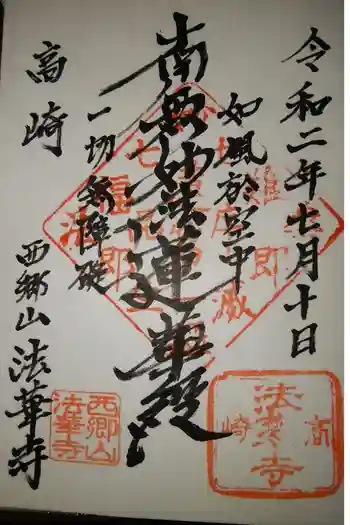 令和二年七月十日
如風於空中
南無妙法蓮華経
一切無障礙
高崎
西郷山 法華寺
七難即滅
七福即生
高崎
法華寺
西郷山
法華寺